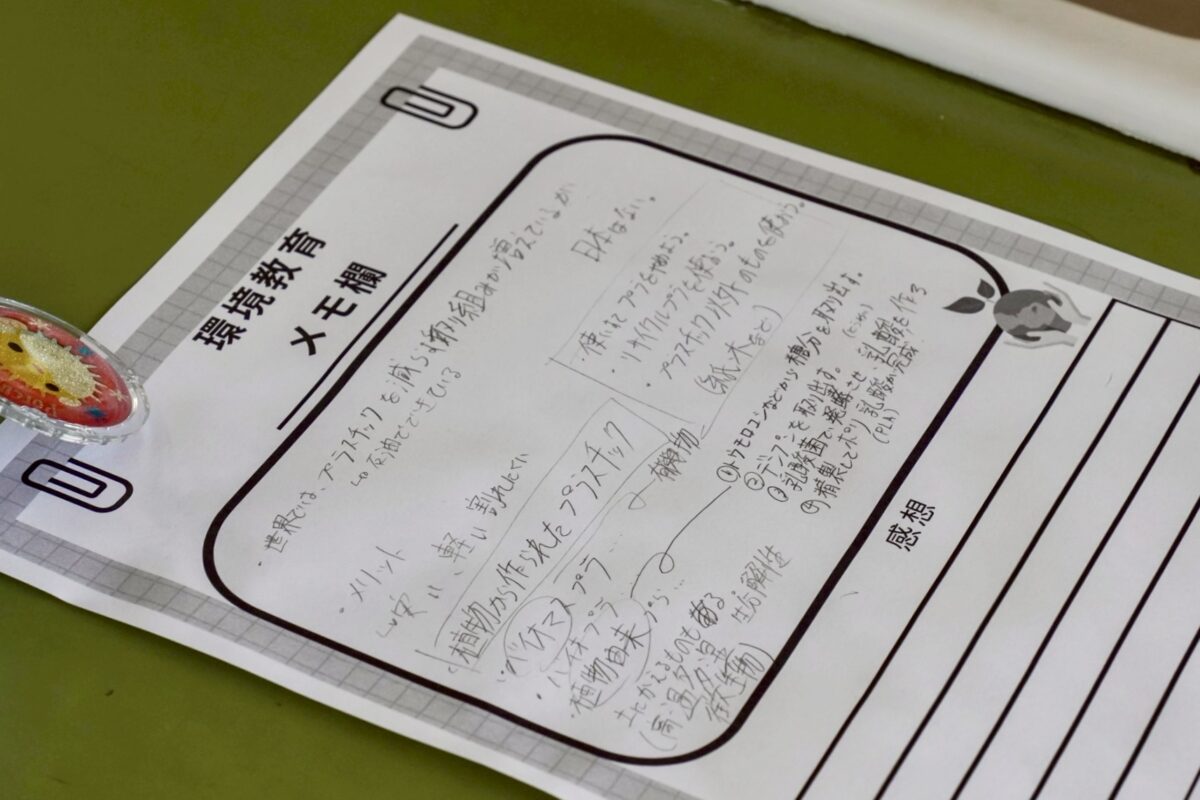 環境教育
メモ欄
・世界では、プラスチックを減らす取り組みが増えているが
日本はない。
↳石油でできている
・使い捨てプラをやめよう。
・リサイクルプラを使おう。
・プラスチック以外のものを使おう。
(紙、木など)
・メリット
↳安い、軽い 割れにくい
植物から作られたプラスチック
・バイオマスプラ
・バイオプラ
・植物由来プラ
有機物
①トウモロコシなどから糖分を取り出す。
②デンプンを取り出す。
③乳酸菌で、発酵させ、乳酸を作る
④精製してポリ乳酸が完成
(PLA)
土にかえるものもある 生分解性
(高温多湿
微生物)
感想